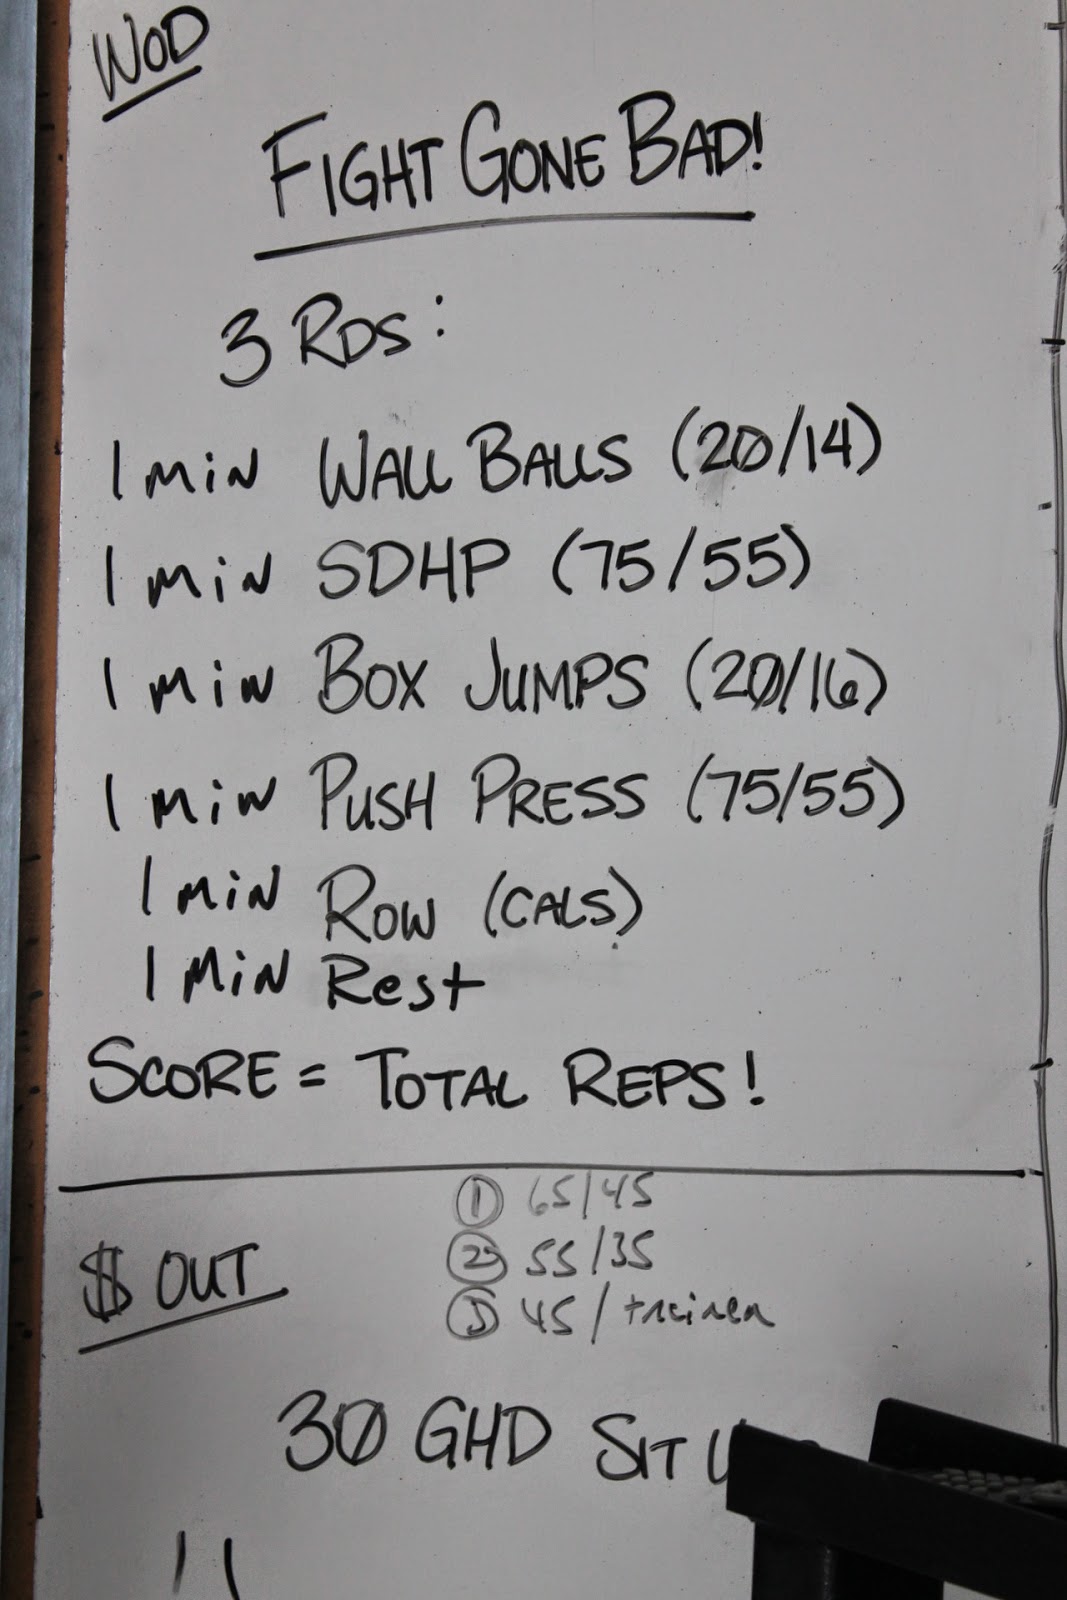 WOD
FIGHT GONE BAD!
3 RDS:
1 MiN WALL BALLS (20/14)
1 MiN SDHP (75/55)
1 MiN BOX JUMPS (20/16)
1 MiN PUSH PRESS (75/55)
1 MiN ROW (CALS)
1 MiN Rest
SCORE = TOTAL REPS!
① 65/45
② 55/35
③ 45/trainer
$ OUT
30 GHD SIT